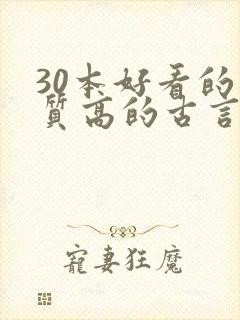 30本好看的
质高的古言
宠妻狂魔